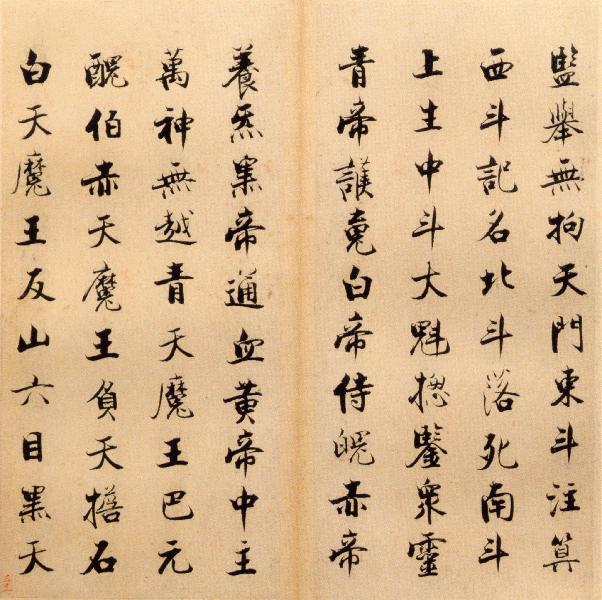 監舉無拘天門東斗注筭
西斗記名北斗落死南斗
上生中斗大魁摠鑒衆靈
青帝護䰟白帝侍魄赤帝
養炁黑帝通血黃帝中主
萬神無越青天魔王巴元
醜伯赤天魔王負天擔石
白天魔王反山六目黑天